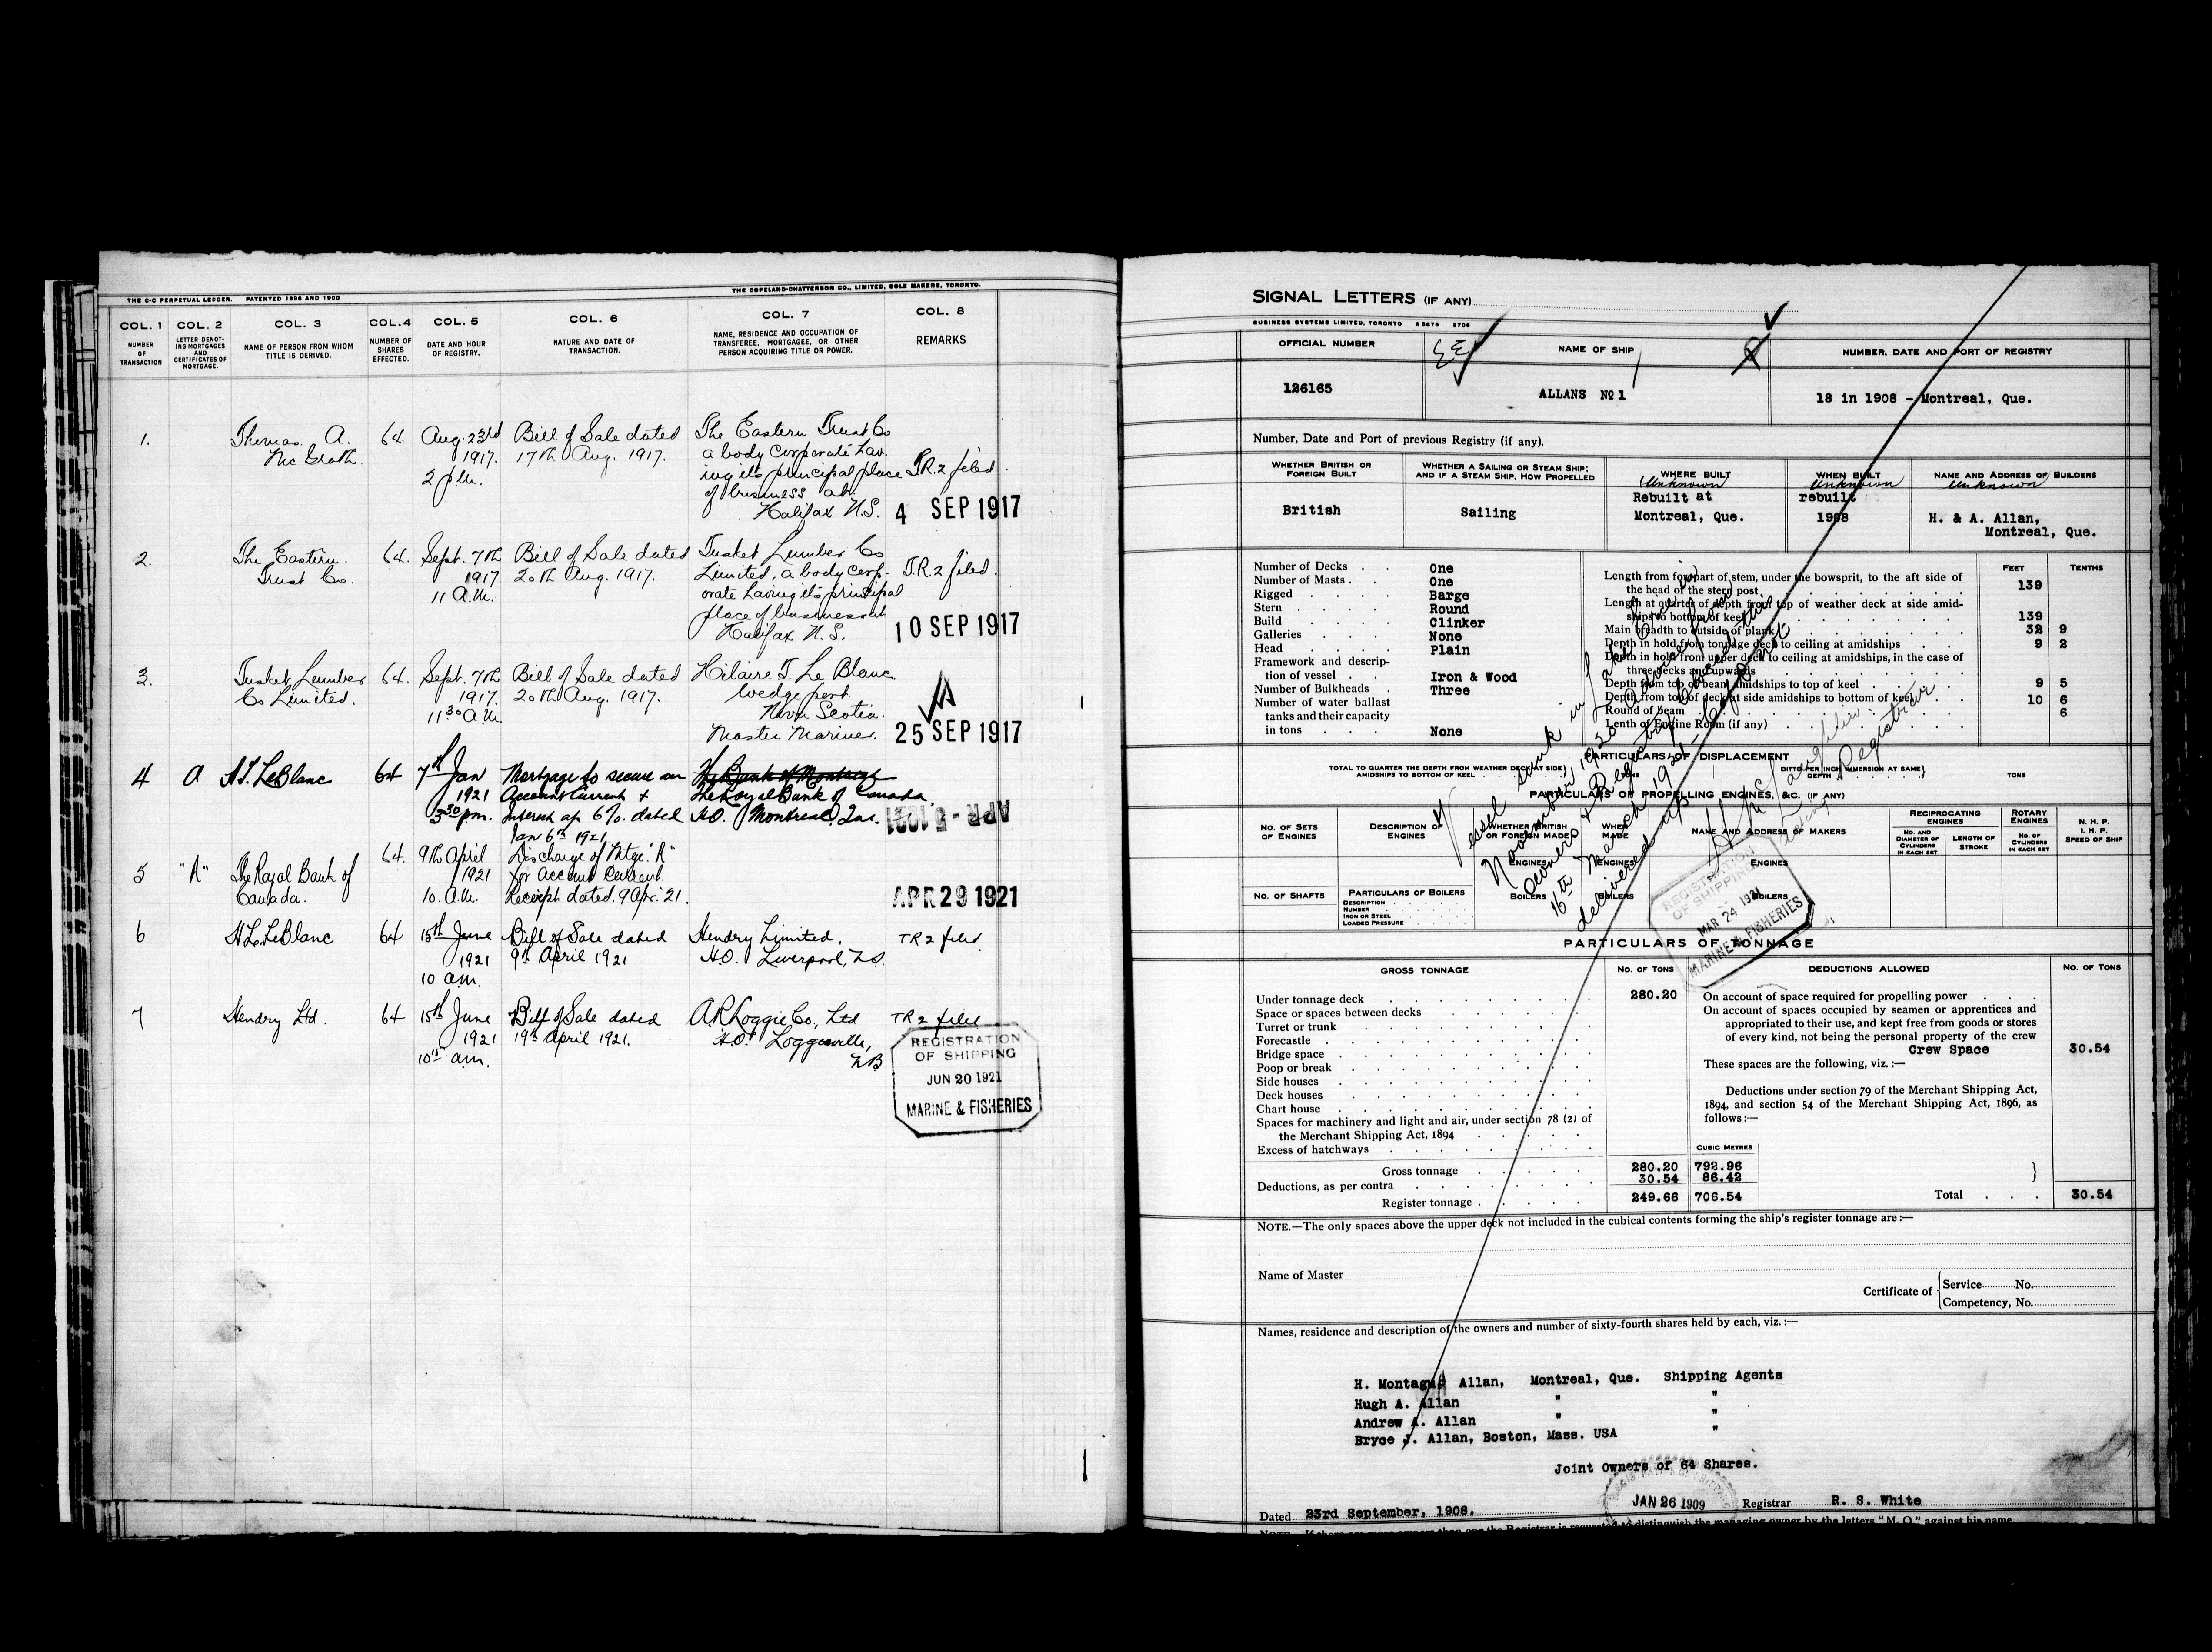 THE C-C PERPETUAL LEDGER. PATENTED 1896 AND 1900
THE COPELAND-CHATTERSON CO., LIMITED, SOLE MAKERS, TORONTO.
COL. 1 COL. 2 COL. 3 COL.4 COL. 5 COL. 6 COL. 7 COL. 8
NUMBER OF TRANSACTION
LETTER DENOTING MORTGAGES AND CERTIFICATES OF MORTGAGE.
NAME OF PERSON FROM WHOM TITLE IS DERIVED.
NUMBER OF SHARES EFFECTED.
DATE AND HOUR OF REGISTRY.
NATURE AND DATE OF TRANSACTION.
NAME, RESIDENCE AND OCCUPATION OF TRANSFEREE, MORTGAGEE, OR OTHER PERSON ACQUIRING TITLE OR POWER.
REMARKS
1. Thomas A. 64. Aug. 23rd Bill of Sale dated The Eastern Trust Co
Mc Grath. 1917. 17th Aug. 1917. a body corporate hav
2 p.m. ing its principal place T.R.2 filed.
of business at
Halifax N.S. 4 SEP 1917
2. The Eastern 64. Sept. 7th Bill of Sale dated Tusket Lumber Co
Trust Co. 1917 20th Aug. 1917. Limited, a body corp- T.R.2 filed.
11 A.M. orate having its principal
place of business at
Halifax N.S. 10 SEP 1917
3. Tusket Lumber 64. Sept. 7th Bill of Sale dated Hilaire T. Le Blanc
Co Limited. 1917. 20th Aug. 1917. Wedgeport
11 30 A.M. Nova Scotia.
Master Mariner. 25 SEP 1917
4 A H.T. LeBlanc 64 7th Jan Mortgage to secure an The Bank of Montreal
1921 Account Current & The Royal Bank of Canada,
3 30 pm. Interest at 6%. dated H.O. Montreal, Que.
Jan 6th 1921
5 "A" The Royal Bank of 64. 9th April Discharge of Mtge. "A"
Canada. 1921 for Account Current.
10. A.M. Receipt dated. 9 Apr. '21. APR 29 1921
6 H.L. LeBlanc 64 15th June Bill of Sale dated Hendry Limited, TR 2 filed
1921 9th April 1921 H.O. Liverpool, N.S.
10 am.
7 Hendry Ltd. 64 15th June Bill of Sale dated A.R. Loggie Co., Ltd TR 2 filed
1921 19th April 1921. H.O. Loggieville,
10 15 am. N B
REGISTRATION
OF SHIPPING
JUN 20 1921
MARINE & FISHERIES
SIGNAL LETTERS (IF ANY)
BUSINESS SYSTEMS LIMITED, TORONTO
OFFICIAL NUMBER NAME OF SHIP NUMBER, DATE AND PORT OF REGISTRY
126165 ALLANS No 1 18 in 1908 - Montreal, Que.
Number, Date and Port of previous Registry (if any).
WHETHER BRITISH OR FOREIGN BUILT
WHETHER A SAILING OR STEAM SHIP; AND IF A STEAM SHIP, HOW PROPELLED
WHERE BUILT WHEN BUILT NAME AND ADDRESS OF BUILDERS
Unknown Unknown Unknown
Rebuilt at rebuilt
British Sailing Montreal, Que. 1908 H. & A. Allan,
Montreal, Que.
Number of Decks One
Number of Masts One
Rigged Barge
Stern Round
Build Clinker
Galleries None
Head Plain
Framework and description of vessel Iron & Wood
Number of Bulkheads Three
Number of water ballast tanks and their capacity in tons None
FEET TENTHS
Length from forepart of stem, under the bowsprit, to the aft side of the head of the stern post 139
Length at quarter of depth from top of weather deck at side amidships to bottom of keel 139
Main breadth to outside of plank 32 9
Depth in hold from tonnage deck to ceiling at amidships 9 2
Depth in hold from upper deck to ceiling at amidships, in the case of three decks and upwards
Depth from top of beam amidships to top of keel 9 5
Depth from top of deck at side amidships to bottom of keel 10 6
Round of beam 6
Lenth of Engine Room (if any)
PARTICULARS OF DISPLACEMENT
TOTAL TO QUARTER THE DEPTH FROM WEATHER DECK AT SIDE AMIDSHIPS TO BOTTOM OF KEEL TONS
DITTO PER INCH IMMERSION AT SAME DEPTH TONS
PARTICULARS OF PROPELLING ENGINES, &C. (IF ANY)
NO. OF SETS OF ENGINES
DESCRIPTION OF ENGINES
WHETHER BRITISH OR FOREIGN MADE
WHEN MADE
NAME AND ADDRESS OF MAKERS
RECIPROCATING ENGINES
NO. AND DIAMETER OF CYLINDERS IN EACH SET
LENGTH OF STROKE
ROTARY ENGINES
NO. OF CYLINDERS IN EACH SET
N. H. P.
I. H. P.
SPEED OF SHIP
ENGINES ENGINES ENGINES
NO. OF SHAFTS
PARTICULARS OF BOILERS
DESCRIPTION
NUMBER
IRON OR STEEL
LOADED PRESSURE
BOILERS BOILERS BOILERS
Vessel sunk in
November 1920
Owners & Registry closed
16th March 1921
Registrar
REGISTRATION
OF SHIPPING
MAR 24 1921
MARINE & FISHERIES
PARTICULARS OF TONNAGE
GROSS TONNAGE NO. OF TONS DEDUCTIONS ALLOWED NO. OF TONS
Under tonnage deck 280.20
Space or spaces between decks
Turret or trunk
Forecastle
Bridge space
Poop or break
Side houses
Deck houses
Chart house
Spaces for machinery and light and air, under section 78 (2) of
the Merchant Shipping Act, 1894
Excess of hatchways
CUBIC METRES
Gross tonnage 280.20 792.96
Deductions, as per contra 30.54 86.42
Register tonnage 249.66 706.54
On account of space required for propelling power
On account of spaces occupied by seamen or apprentices and
appropriated to their use, and kept free from goods or stores
of every kind, not being the personal property of the crew
Crew Space 30.54
These spaces are the following, viz.:—
Deductions under section 79 of the Merchant Shipping Act,
1894, and section 54 of the Merchant Shipping Act, 1896, as
follows:—
Total 30.54
NOTE.—The only spaces above the upper deck not included in the cubical contents forming the ship's register tonnage are:—
Name of Master
Certificate of Service No.
Competency, No.
Names, residence and description of the owners and number of sixty-fourth shares held by each, viz.:—
H. Montague Allan, Montreal, Que. Shipping Agents
Hugh A. Allan " "
Andrew A. Allan " "
Bryce J. Allan, Boston, Mass. USA "
Joint Owners of 64 Shares.
JAN 26 1909
Dated 23rd September, 1908. Registrar R. S. White
NOTE.—If there are more owners than one the Registrar is requested to distinguish the managing owner by the letters "M. O." against his name.